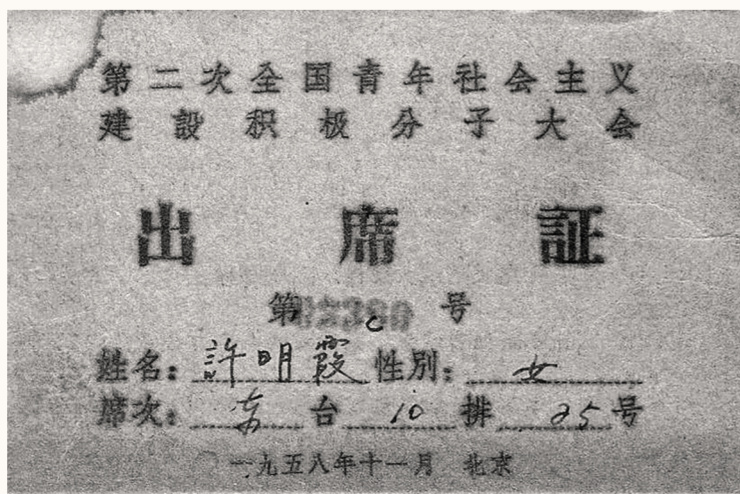 第二次全国青年社会主义
建設积极分子大会
出席証
第 号
姓名：許明霞 性別：女
席次：东台10排25号
一九五八年十一月 北京